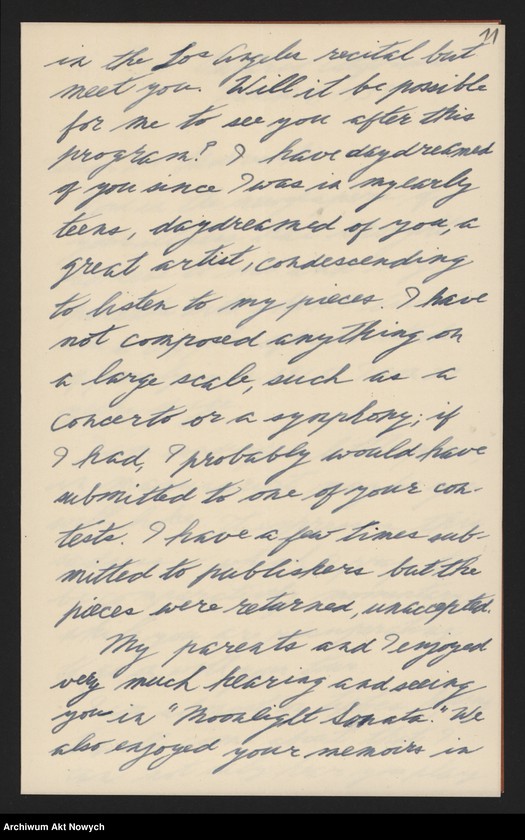 11
in the Los Angeles recital but
meet you. Will it be possible
for me to see you after this
program? I have daydreamed
of you since I was in my early
teens, daydreamed of you, a
great artist, condescending
to listen to my pieces. I have
not composed anything on
a large scale, such as a
concerto or a symphony; if
I had, I probably would have
submitted to one of your con-
tests. I have a few times sub-
mitted to publishers but the
pieces were returned, unaccepted.
My parents and I enjoyed
very much hearing and seeing
you in "Moonlight Sonata." We
also enjoyed your memoirs in
Archiwum Akt Nowych